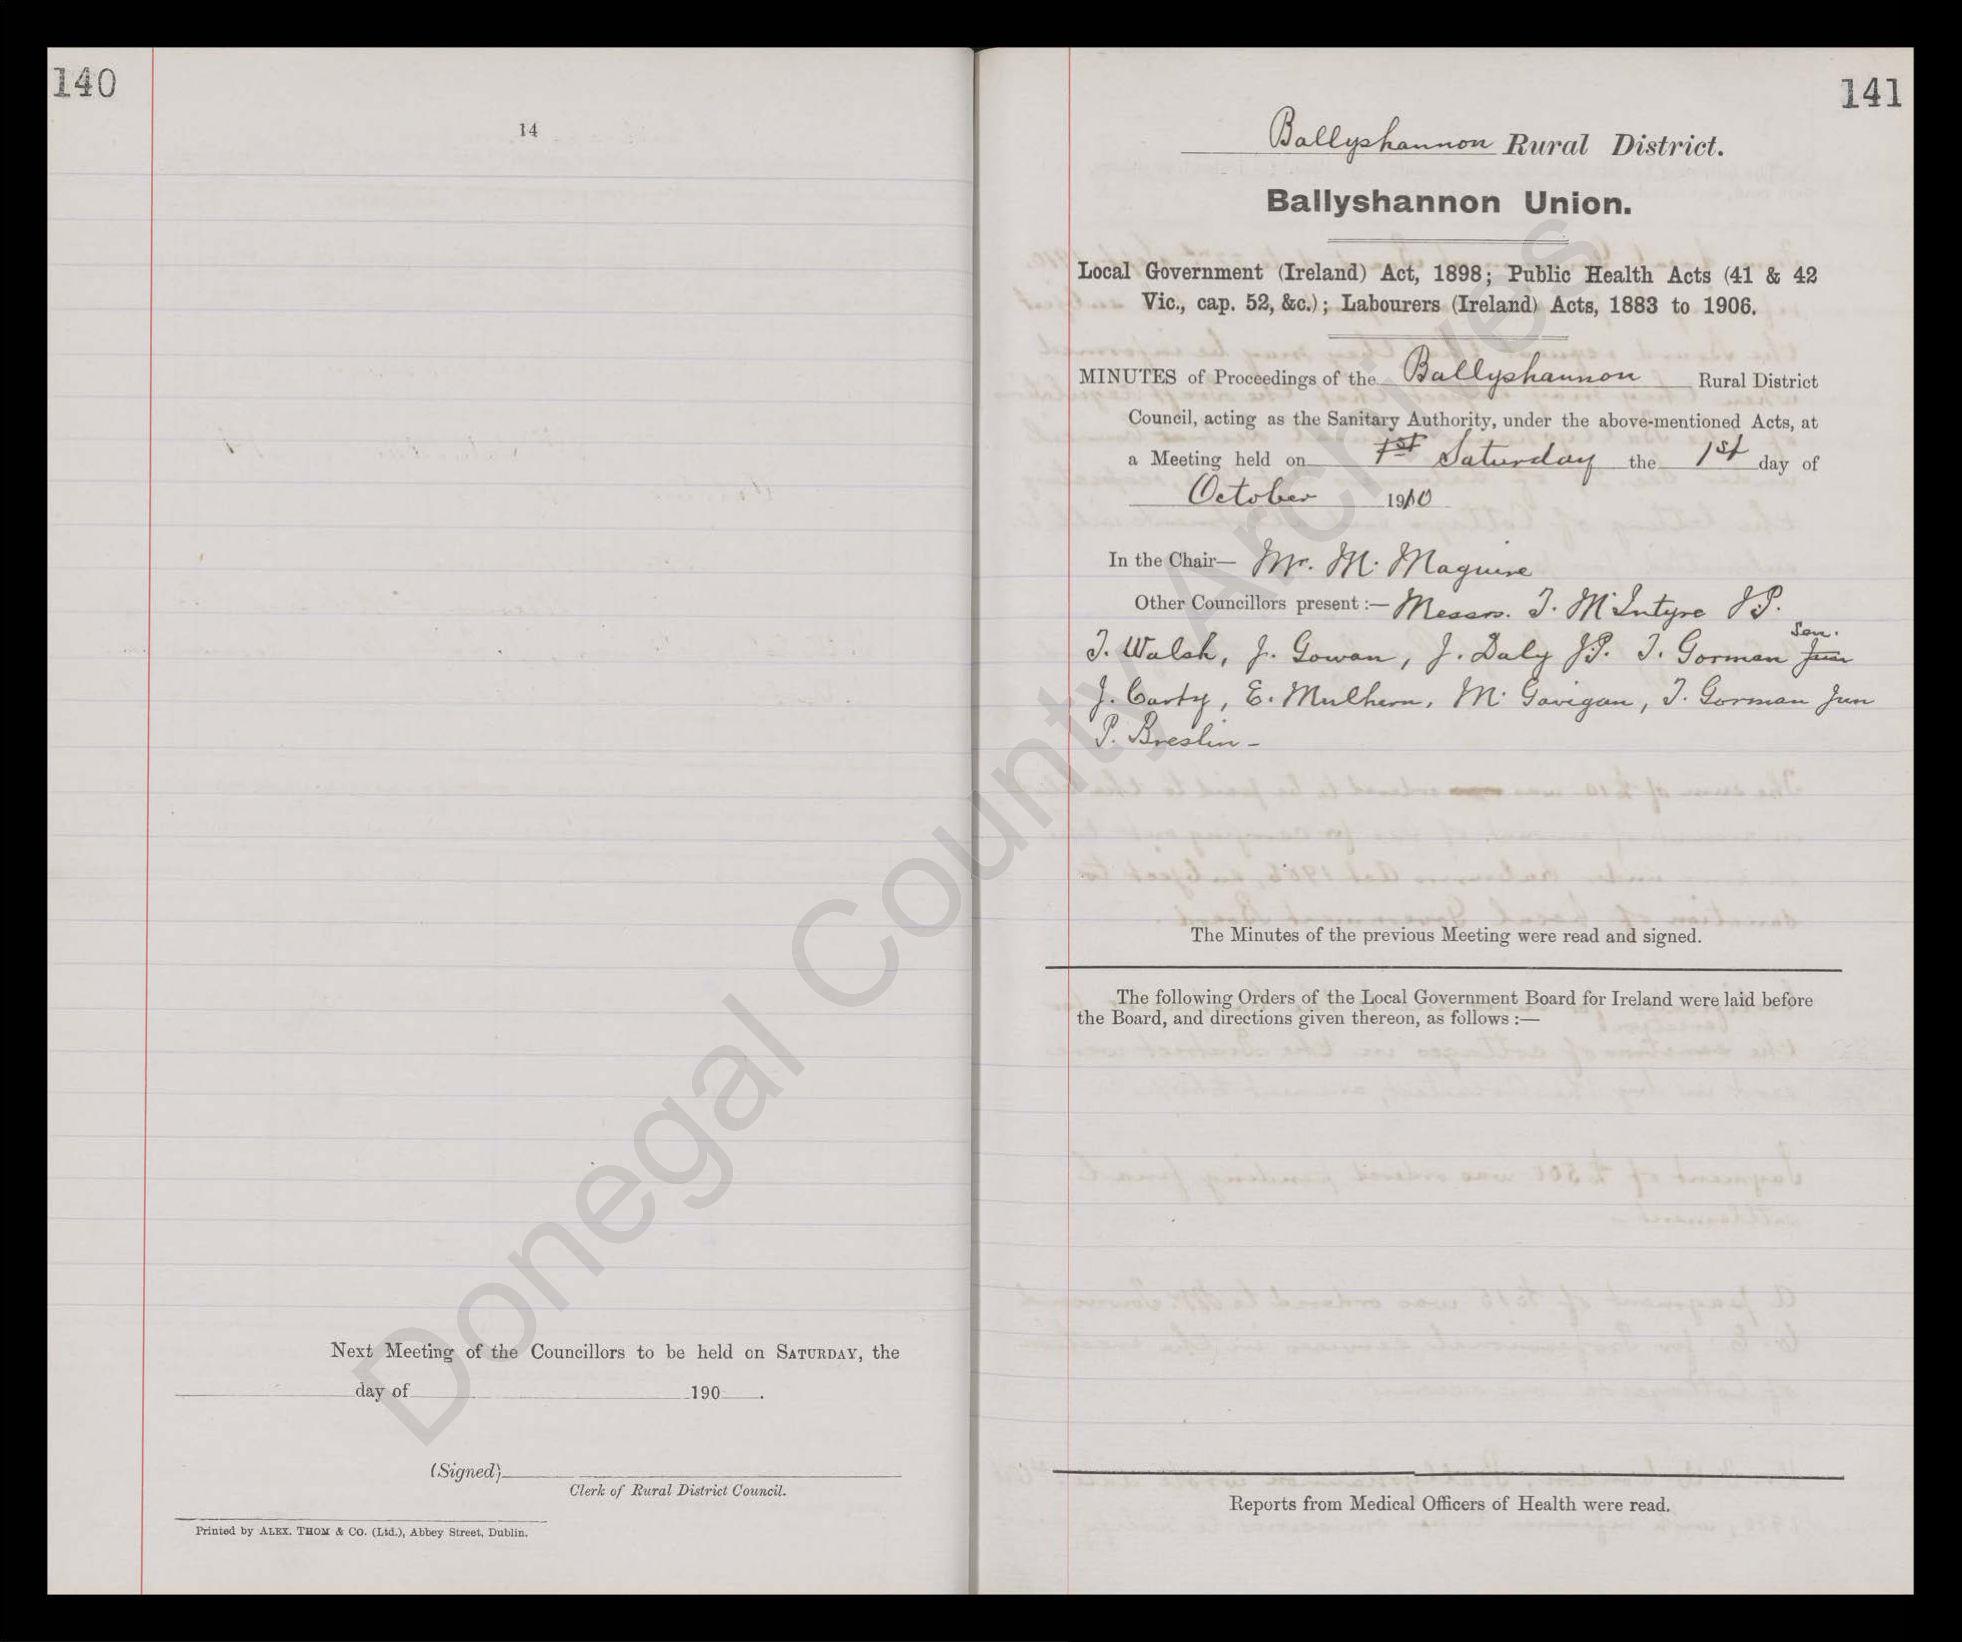 140
14
Next Meeting of the Councillors to be held on SATURDAY, the
day of 190 .
(Signed)
Clerk of Rural District Council.
Printed by ALEX. THOM & CO. (Ltd.), Abbey Street, Dublin.
141
Ballyshannon Rural District.
Ballyshannon Union.
Local Government (Ireland) Act, 1898; Public Health Acts (41 & 42
Vic., cap. 52, &c.); Labourers (Ireland) Acts, 1883 to 1906.
MINUTES of Proceedings of the Ballyshannon Rural District
Council, acting as the Sanitary Authority, under the above-mentioned Acts, at
a Meeting held on 1st Saturday the 1st day of
October 1910
In the Chair— Mr. M. Maguire
Other Councillors present :— Messrs. T. McIntyre J.P.
Sen.
T. Walsh, J. Gowan, J. Daly J.P. T. Gorman Jun
J. Carty, E. Mulhern, M. Gavigan, T. Gorman Jun
P. Breslin -
The Minutes of the previous Meeting were read and signed.
The following Orders of the Local Government Board for Ireland were laid before
the Board, and directions given thereon, as follows :—
Reports from Medical Officers of Health were read.
Donegal County Archives